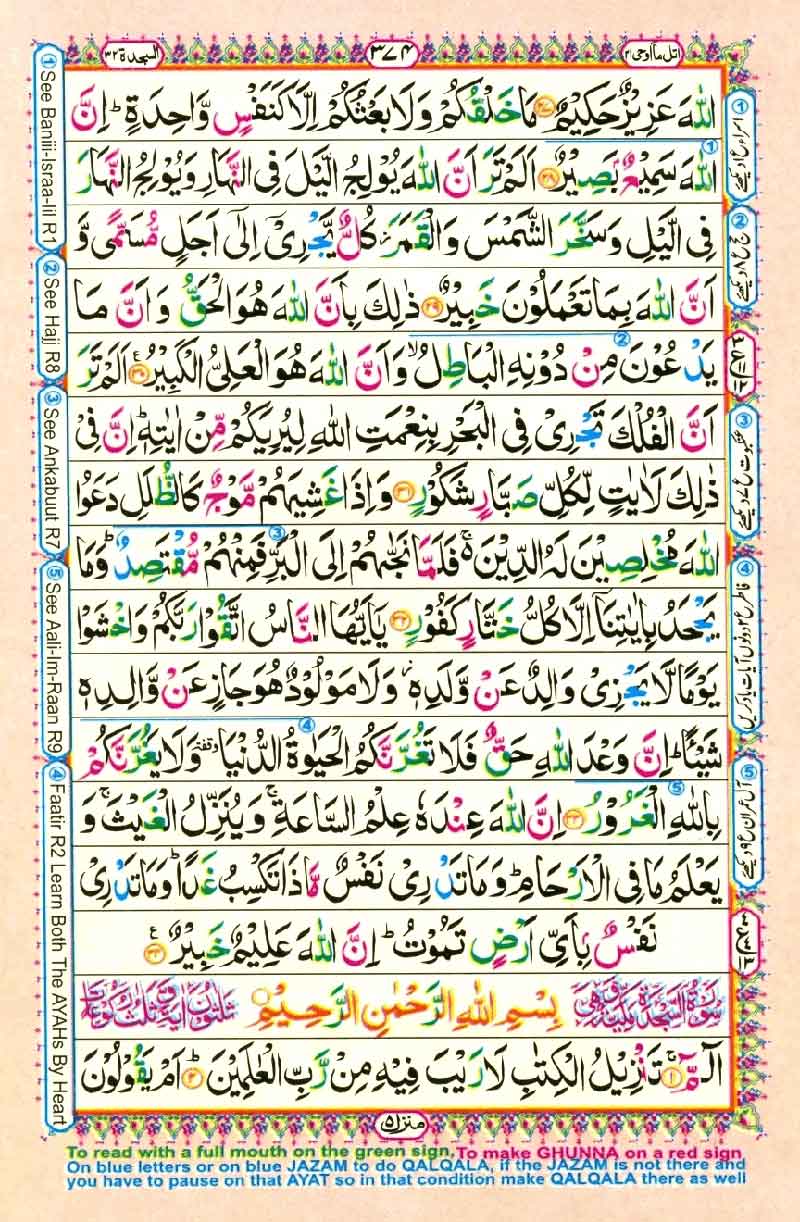 السجدة ٣٢
٣٧٤
اتل ما اوحی ٢١
اللّٰهَ عَزِيْزٌ حَكِيْمٌ ﴿٢٧﴾ مَا خَلْقُكُمْ وَلَا بَعْثُكُمْ اِلَّا كَنَفْسٍ وَّاحِدَةٍ ؕ اِنَّ
اللّٰهَ سَمِيْعٌۢ بَصِيْرٌ ﴿٢٨﴾ اَلَمْ تَرَ اَنَّ اللّٰهَ يُوْلِجُ الَّيْلَ فِى النَّهَارِ وَيُوْلِجُ النَّهَارَ
فِى الَّيْلِ وَسَخَّرَ الشَّمْسَ وَالْقَمَرَ ؗ كُلٌّ يَّجْرِىْۤ اِلٰٓى اَجَلٍ مُّسَمًّى وَّ
اَنَّ اللّٰهَ بِمَا تَعْمَلُوْنَ خَبِيْرٌ ﴿٢٩﴾ ذٰلِكَ بِاَنَّ اللّٰهَ هُوَ الْحَقُّ وَاَنَّ مَا
يَدْعُوْنَ مِنْ دُوْنِهِ الْبَاطِلُ ۙ وَاَنَّ اللّٰهَ هُوَ الْعَلِىُّ الْكَبِيْرُ ﴿٣٠﴾ اَلَمْ تَرَ
اَنَّ الْفُلْكَ تَجْرِىْ فِى الْبَحْرِ بِنِعْمَتِ اللّٰهِ لِيُرِيَكُمْ مِّنْ اٰيٰتِهٖ ؕ اِنَّ فِىْ
ذٰلِكَ لَاٰيٰتٍ لِّكُلِّ صَبَّارٍ شَكُوْرٍ ﴿٣١﴾ وَاِذَا غَشِيَهُمْ مَّوْجٌ كَالظُّلَلِ دَعَوُا
اللّٰهَ مُخْلِصِيْنَ لَهُ الدِّيْنَ ۬ۚ فَلَمَّا نَجّٰىهُمْ اِلَى الْبَرِّ فَمِنْهُمْ مُّقْتَصِدٌ ؕ وَمَا
يَجْحَدُ بِاٰيٰتِنَاۤ اِلَّا كُلُّ خَتَّارٍ كَفُوْرٍ ﴿٣٢﴾ يٰۤاَيُّهَا النَّاسُ اتَّقُوْا رَبَّكُمْ وَاخْشَوْا
يَوْمًا لَّا يَجْزِىْ وَالِدٌ عَنْ وَّلَدِهٖ ؗ وَلَا مَوْلُوْدٌ هُوَ جَازٍ عَنْ وَّالِدِهٖ
شَيْـًٔا ؕ اِنَّ وَعْدَ اللّٰهِ حَقٌّ فَلَا تَغُرَّنَّكُمُ الْحَيٰوةُ الدُّنْيَا وقفة وَلَا يَغُرَّنَّكُمْ
بِاللّٰهِ الْغَرُوْرُ ﴿٣٣﴾ اِنَّ اللّٰهَ عِنْدَهٗ عِلْمُ السَّاعَةِ ۚ وَيُنَزِّلُ الْغَيْثَ ۚ وَ
يَعْلَمُ مَا فِى الْاَرْحَامِ ؕ وَمَا تَدْرِىْ نَفْسٌ مَّاذَا تَكْسِبُ غَدًا ؕ وَمَا تَدْرِىْ
نَفْسٌۢ بِاَىِّ اَرْضٍ تَمُوْتُ ؕ اِنَّ اللّٰهَ عَلِيْمٌ خَبِيْرٌ ﴿٣٤﴾ ع
سورة السجدة مكية وهى بِسْمِ اللّٰهِ الرَّحْمٰنِ الرَّحِيْمِ ثلثون اية وثلث ركوعات
الٓمّٓ ﴿١﴾ تَنْزِيْلُ الْكِتٰبِ لَا رَيْبَ فِيْهِ مِنْ رَّبِّ الْعٰلَمِيْنَ ﴿٢﴾ اَمْ يَقُوْلُوْنَ
منزل ٥
① See Baniii-Israa-Iil R1
② See Hajj R8
③ See Ankabuut R7
⑤ See Aali-Im-Raan R9
④ Faatir R2 Learn Both The AYAHs By Heart
To read with a full mouth on the green sign, To make GHUNNA on a red sign
On blue letters or on blue JAZAM to do QALQALA, if the JAZAM is not there and
you have to pause on that AYAT so in that condition make QALQALA there as well